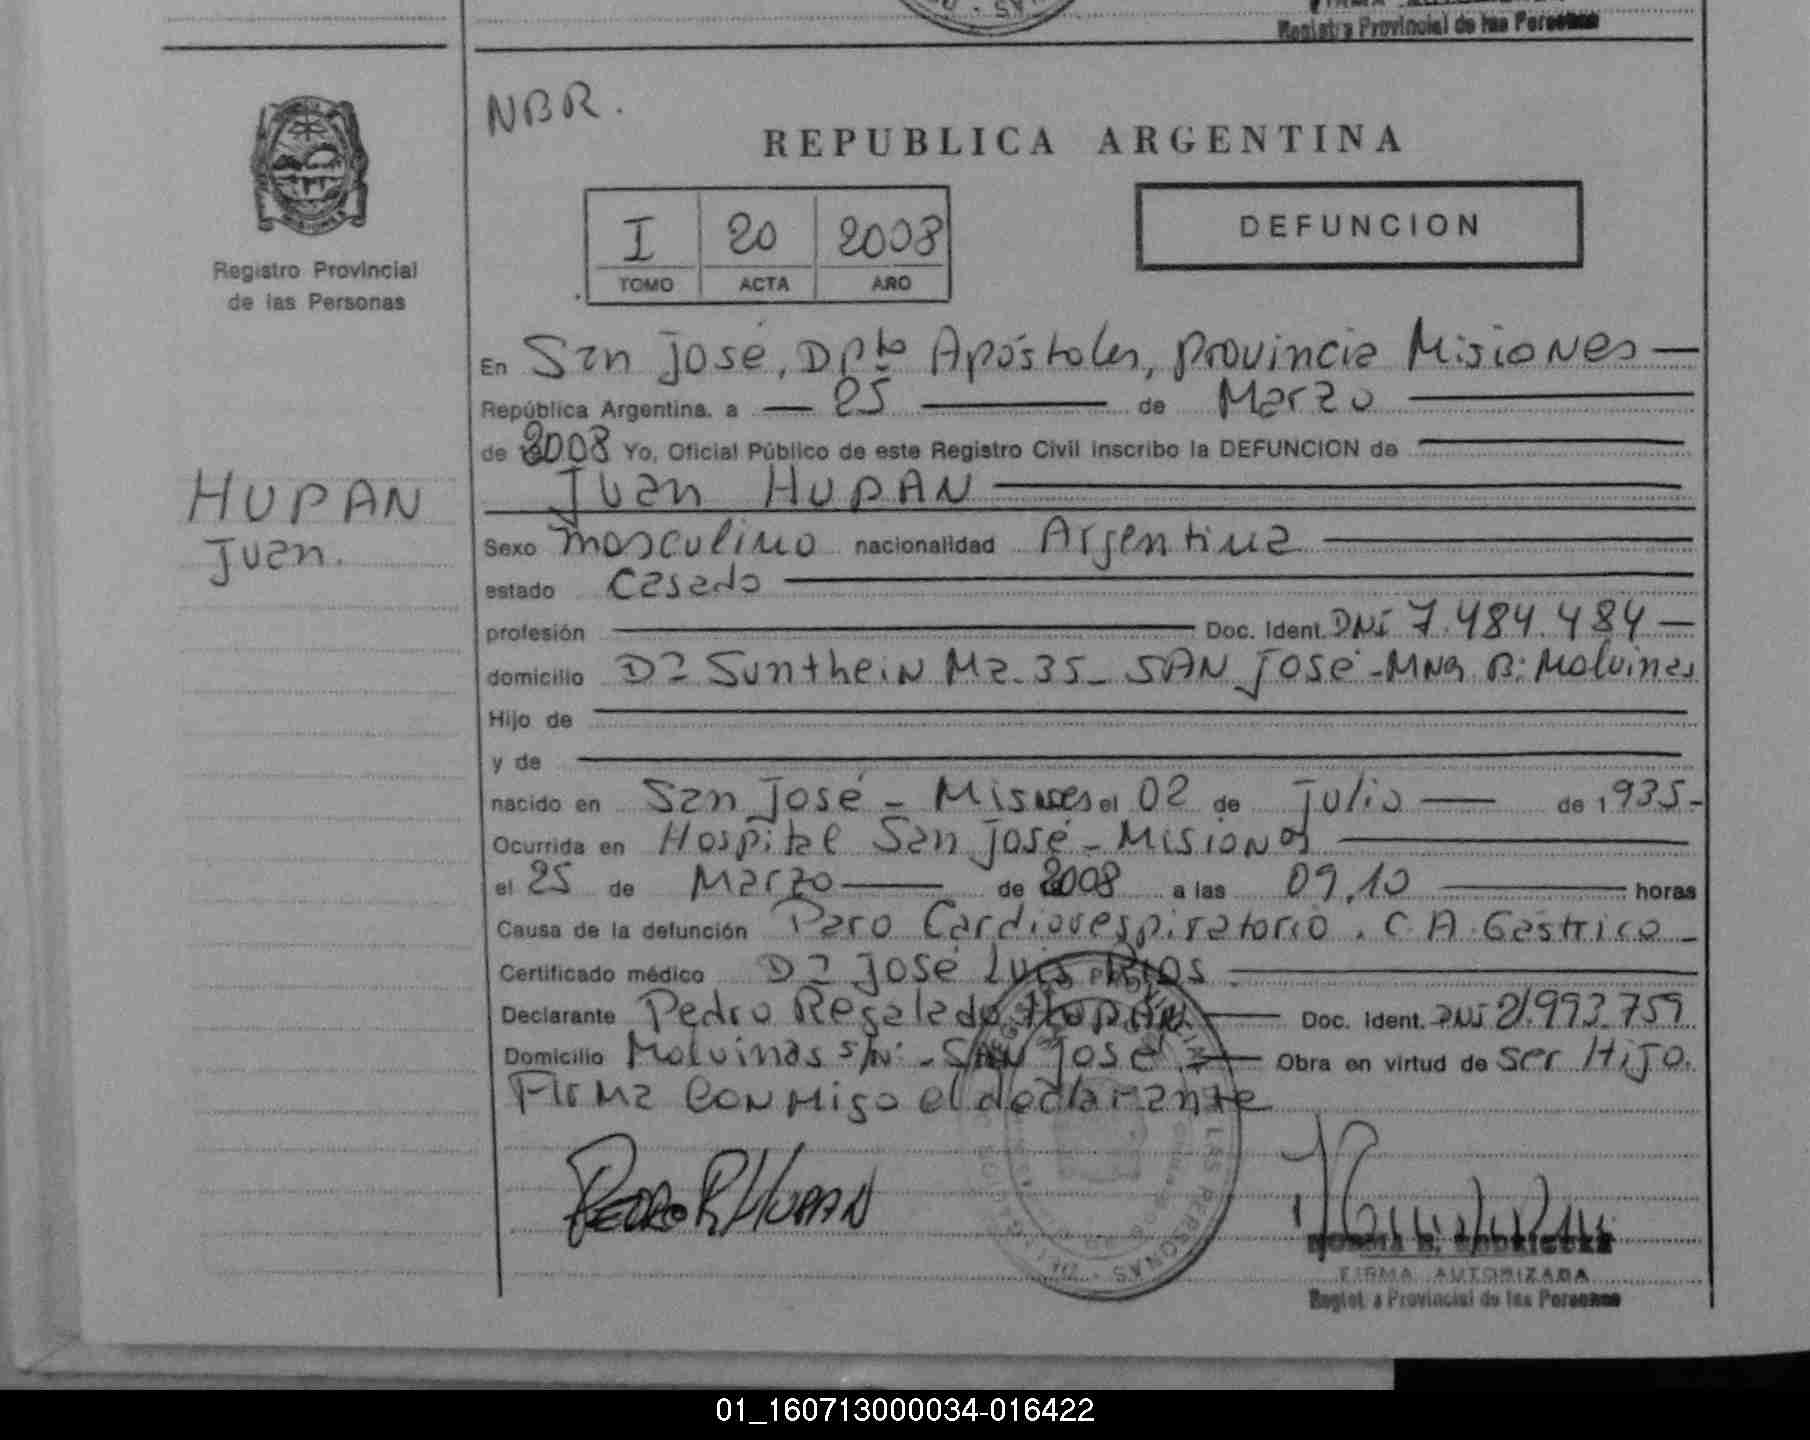 Registro Provincial de las Personas
NBR.
REPUBLICA ARGENTINA
I 20 2008
TOMO ACTA AÑO
DEFUNCION
Registro Provincial
de las Personas
HUPAN
Juan.
En San José, Dpto Apóstoles, provincia Misiones —
República Argentina, a — 25 — de Marzo —
de 2008 Yo, Oficial Público de este Registro Civil inscribo la DEFUNCION de —
Juan HUPAN —
Sexo masculino nacionalidad Argentina —
estado Casado —
profesión — Doc. Ident. DNI 7.484.484 —
domicilio Dr Sunthein Mz. 35 - SAN José - Mnes B: Malvinas
Hijo de —
y de —
nacido en San José - Misiones el 02 de Julio — de 1935-
Ocurrida en Hospital San José - Misiones —
el 25 de Marzo — de 2008 a las 09,10 — horas
Causa de la defunción Paro Cardiorespiratorio. C.A. Gastrico -
Certificado médico Dr José Luis Rios —
Declarante Pedro Regalado Hupán — Doc. Ident. DNI 21.993.759
Domicilio Malvinas S/N: - SAN José — Obra en virtud de ser Hijo.
Firma conmigo el declarante
PEDRO R HUPAN
NORMA B. RODRIGUEZ
FIRMA AUTORIZADA
Registro Provincial de las Personas
01_160713000034-016422